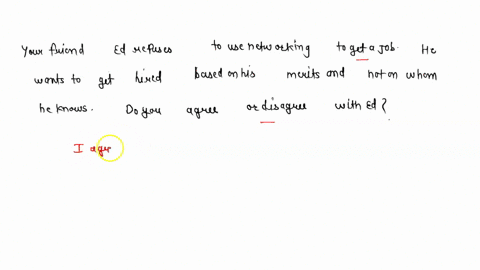 Your friend Ed refuses to use networking to get a job. He
wants to get hired based on his merits and not on whom
he knows. Do you agree or disagree with Ed?
I agr